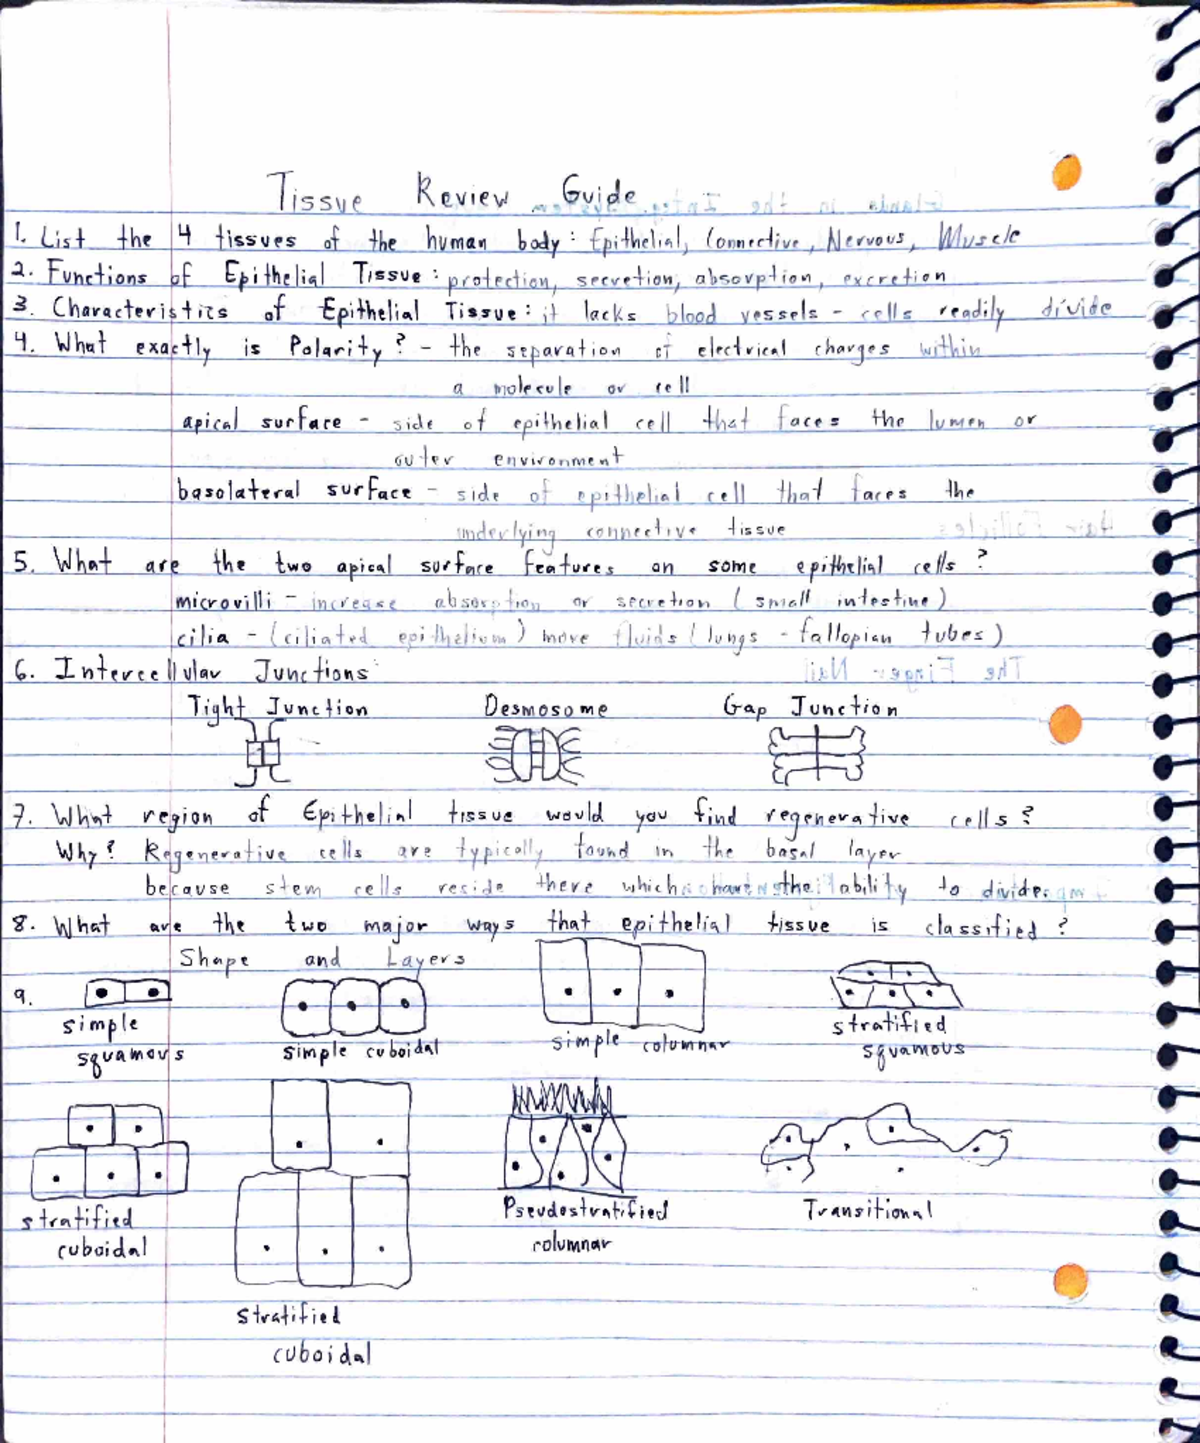 Tissue Review Guide
1. List the 4 tissues of the human body: Epithelial, Connective, Nervous, Muscle
2. Functions of Epithelial Tissue: protection, secretion, absorption, excretion
3. Characteristics of Epithelial Tissue: it lacks blood vessels - cells readily divide
4. What exactly is Polarity? - the separation of electrical charges within
a molecule or cell
apical surface - side of epithelial cell that faces the lumen or
outer environment
basolateral surface - side of epithelial cell that faces the
underlying connective tissue
5. What are the two apical surface features on some epithelial cells?
microvilli - increase absorption or secretion (small intestine)
cilia - (ciliated epithelium) move fluids (lungs - fallopian tubes)
6. Intercellular Junctions:
Tight Junction Desmosome Gap Junction
7. What region of Epithelial tissue would you find regenerative cells?
Why? Regenerative cells are typically found in the basal layer
because stem cells reside there which have the ability to divide.
8. What are the two major ways that epithelial tissue is classified?
Shape and Layers
9.
simple squamous
simple cuboidal
simple columnar
stratified squamous
stratified cuboidal
Pseudostratified columnar
Transitional
stratified cuboidal